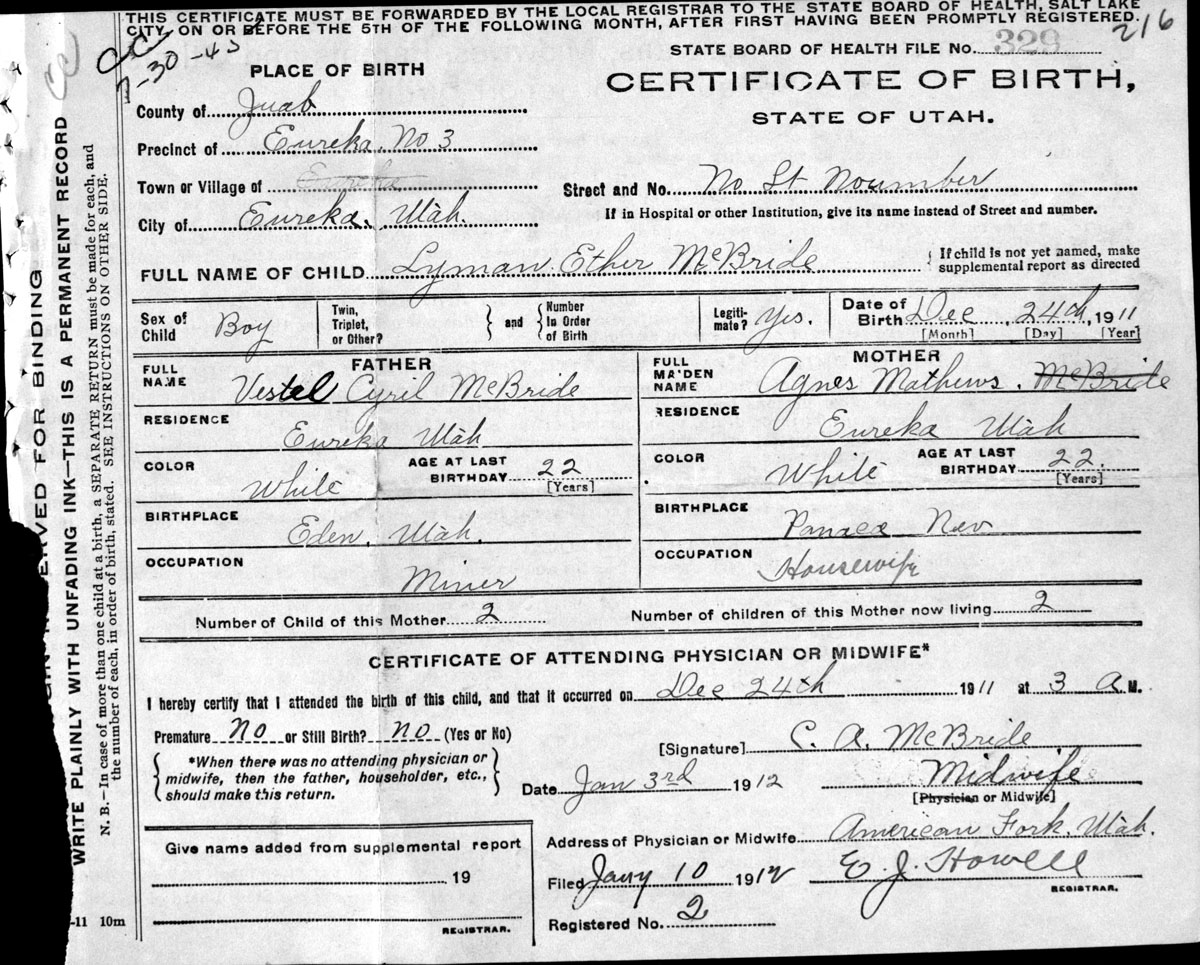 THIS CERTIFICATE MUST BE FORWARDED BY THE LOCAL REGISTRAR TO THE STATE BOARD OF HEALTH, SALT LAKE
CITY, ON OR BEFORE THE 5TH OF THE FOLLOWING MONTH, AFTER FIRST HAVING BEEN PROMPTLY REGISTERED.
216
CC
7-30-43
CC
STATE BOARD OF HEALTH FILE No. 329
PLACE OF BIRTH
CERTIFICATE OF BIRTH,
STATE OF UTAH.
County of Juab
Precinct of Eureka. No 3
Town or Village of Eureka
Street and No. No St Noumber
City of Eureka, Utah.
If in Hospital or other Institution, give its name instead of Street and number.
FULL NAME OF CHILD Lyman Ether McBride
If child is not yet named, make
supplemental report as directed
Sex of Child Boy
Twin, Triplet, or Other? and Number in Order of Birth
Legiti-mate? Yes.
Date of Birth Dec 24th, 1911
[Month] [Day] [Year]
FATHER
FULL NAME Vestel Cyril McBride
RESIDENCE Eureka Utah
COLOR White
AGE AT LAST BIRTHDAY 22 [Years]
BIRTHPLACE Eden, Utah.
OCCUPATION Miner
MOTHER
FULL MAIDEN NAME Agnes Mathews. McBride
RESIDENCE Eureka Utah
COLOR White
AGE AT LAST BIRTHDAY 22. [Years]
BIRTHPLACE Panaca Nev
OCCUPATION Housewife
Number of Child of this Mother 2
Number of children of this Mother now living 2
CERTIFICATE OF ATTENDING PHYSICIAN OR MIDWIFE*
I hereby certify that I attended the birth of this child, and that it occurred on Dec 24th 1911 at 3 A M.
Premature No or Still Birth? No (Yes or No)
*When there was no attending physician or
midwife, then the father, householder, etc.,
should make this return.
[Signature] C. A. McBride
Date Jan 3rd 1912
Midwife
[Physician or Midwife]
Address of Physician or Midwife American Fork, Utah.
Give name added from supplemental report
19
REGISTRAR.
Filed Jany 10 1912
E. J. Howell
REGISTRAR.
Registered No. 2
-11 10m
RVED FOR BINDING
WRITE PLAINLY WITH UNFADING INK—THIS IS A PERMANENT RECORD
N. B.—In case of more than one child at a birth, a SEPARATE RETURN must be made for each, and
the number of each, in order of birth, stated. SEE INSTRUCTIONS ON OTHER SIDE.